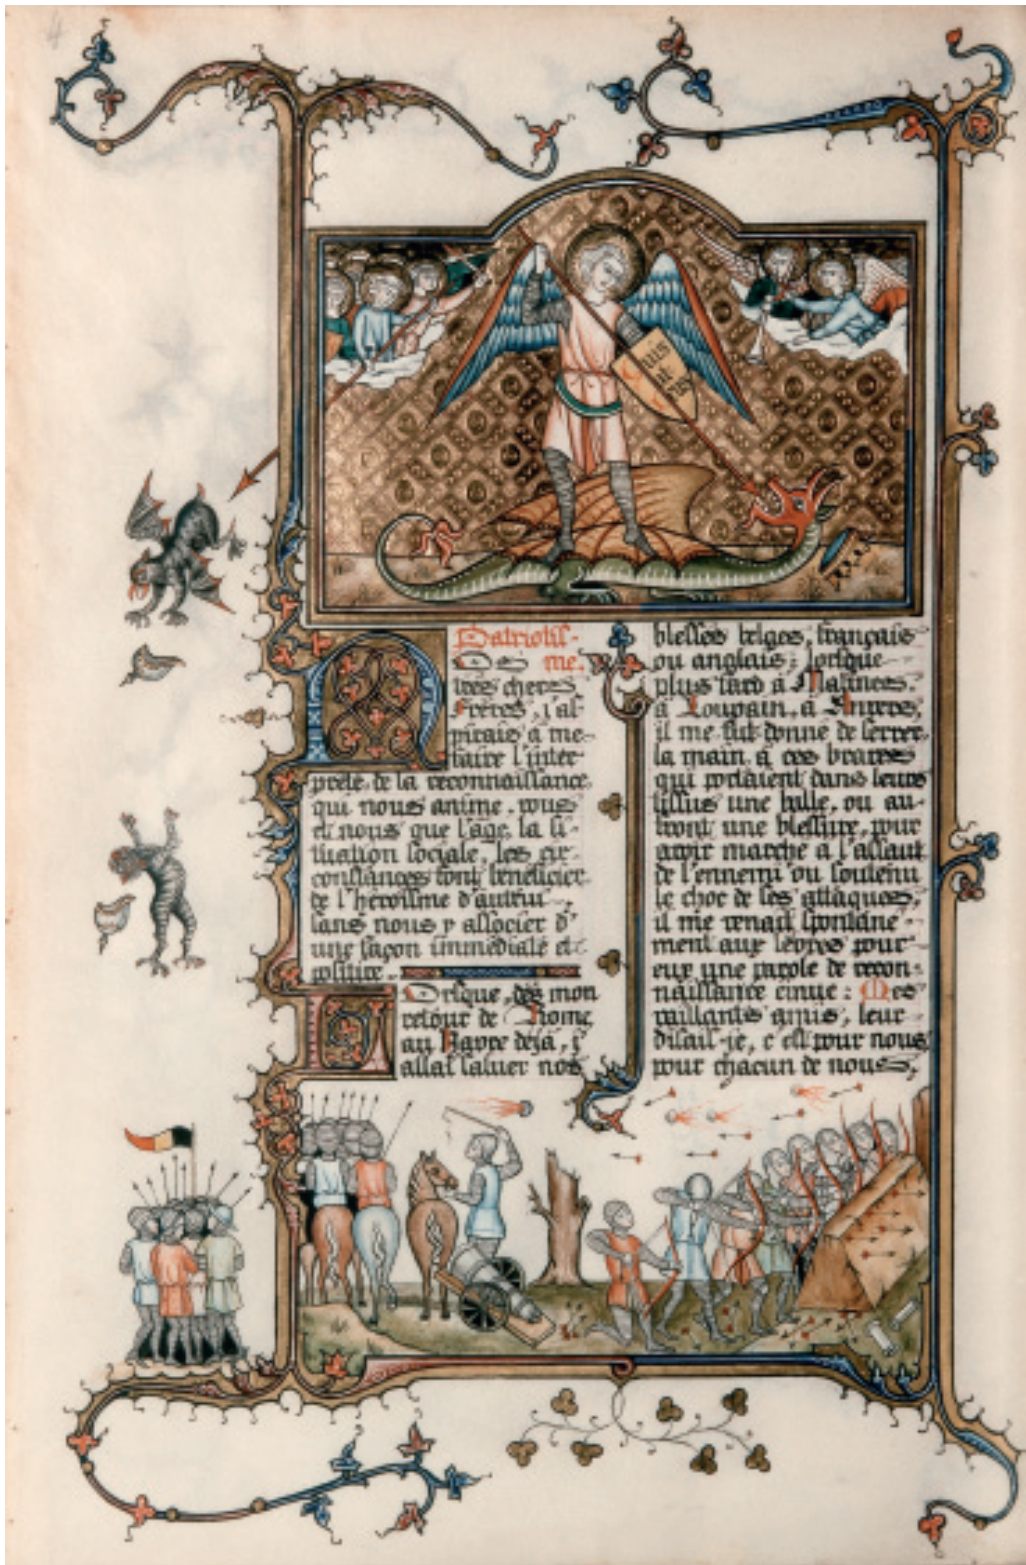 4
Patriotis-
MEs me.
tres chers
Freres, j'as
pirais a me
faire l'inter
prete de la reconnaissance
qui nous anime, vous
et nous que l'age, la si-
tuation sociale, les cir
constances font beneficier
de l'heroisme d'autrui,
sans nous y associer d'
une façon immediate et
positive.
LOrsque, dès mon
retour de Rome,
au Havre deja, j'
allai saluer nos
blesses belges, français
ou anglais; lorsque
plus tard a Malines,
a Louvain, a Anvers,
il me fut donne de serrer
la main a ces braves
qui portaient dans leurs
tissus une balle, ou au
front une blessure, pour
avoir marche a l'assaut
de l'ennemi ou soutenu
le choc de ses attaques,
il me venait spontane-
ment aux levres pour
eux une parole de recon-
naissance emue: Mes
vaillants amis, leur
disais-je, c'est pour nous
pour chacun de nous,